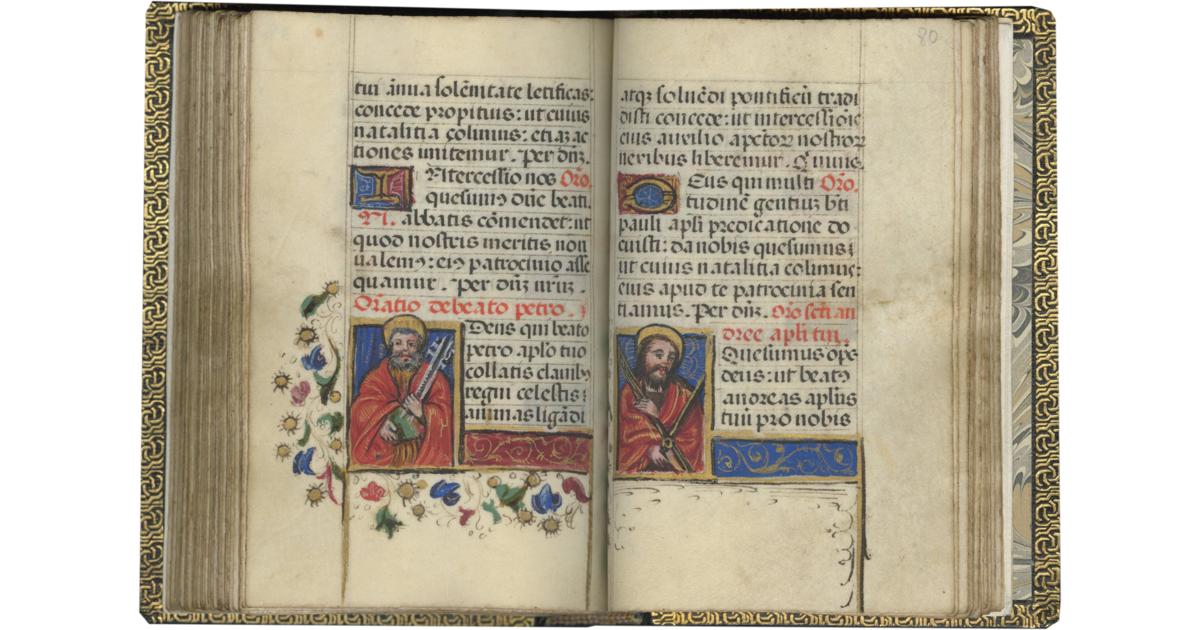 tui añua solẽnitate letificas:
concede propitius: ut cuius
natalitia colimus: etiaz ac
tiones imitemur. Per dñz.
INtercessio nos Orõ.
quesumꝰ dñe beati.
N. abbatis cõmendet: ut
quod nostris meritis non
ualemꝰ: eiꝰ patrocinio asse
quamur. Per dñz nrũz.
Oratio de beato petro.
Deus qui beato
petro aplõ tuo
collatis clauibꝰ
regni celestis:
animas ligãdi
80
atqz soluẽdi pontificiũ tradi
disti concede: ut intercessiõis
eius auxilio a pctõꝝ nostroꝝ
neribus liberemur. Qui uiuis.
DEus qui multi Orõ.
tudinẽ gentiuz bti
pauli apli predicatione do
cuisti: da nobis quesumus:
ut cuius natalitia colimus:
eius apud te patrocinia sen
tiamus. Per dñz. Orõ scti an
dree apli tui.
Quesumus ops
deus: ut beatꝰ
andreas aplus
tuũ pro nobis